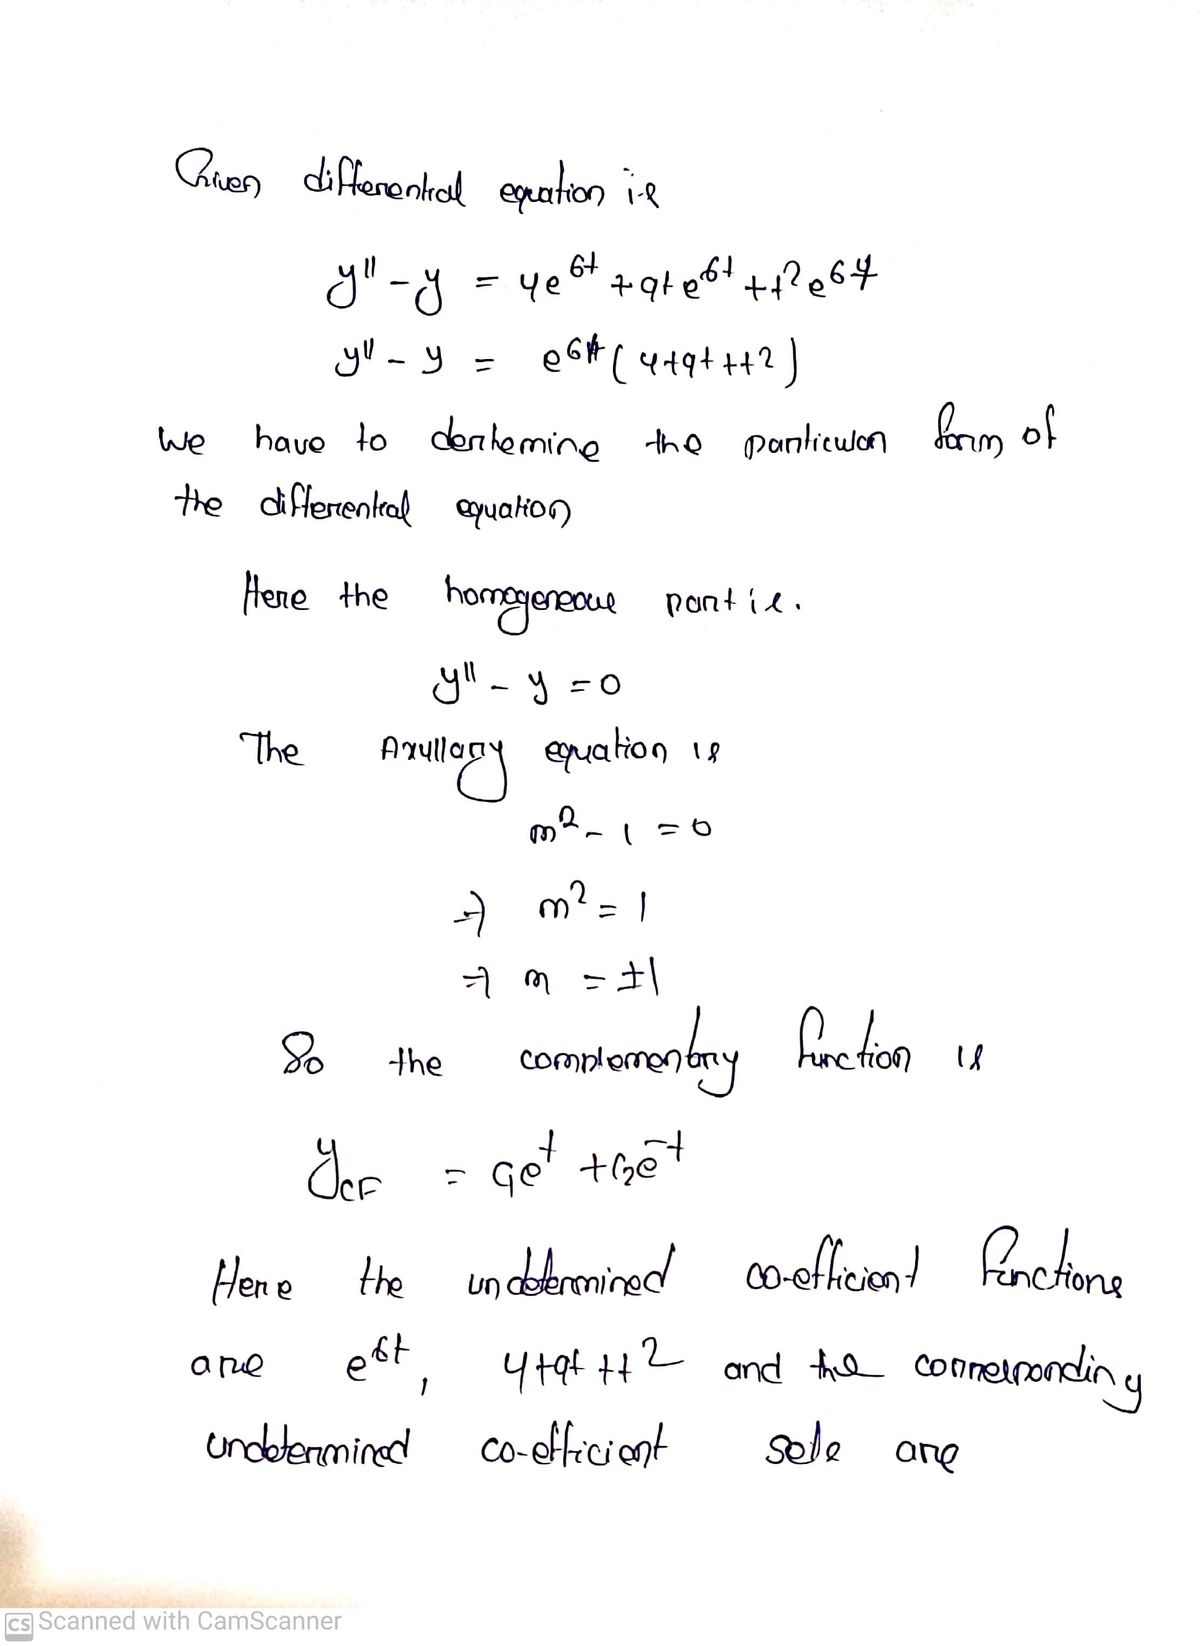 Given differential equation is
y" - y = 4e^6t + 9te^6t + t^2e^6t
y" - y = e^6t (4+9t+t^2)
We have to dertemine the particular form of
the differential equation
Here the homogeneous part is.
y" - y = 0
The Axullary equation is
m^2 - 1 = 0
⇒ m^2 = 1
⇒ m = ±1
So the complementary function is
y_CF = C1e^t + C2e^-t
Here the undetermined co-efficient functions
are e^6t, 4+9t+t^2 and the corresponding
undetermined co-efficient sets are
CS Scanned with CamScanner